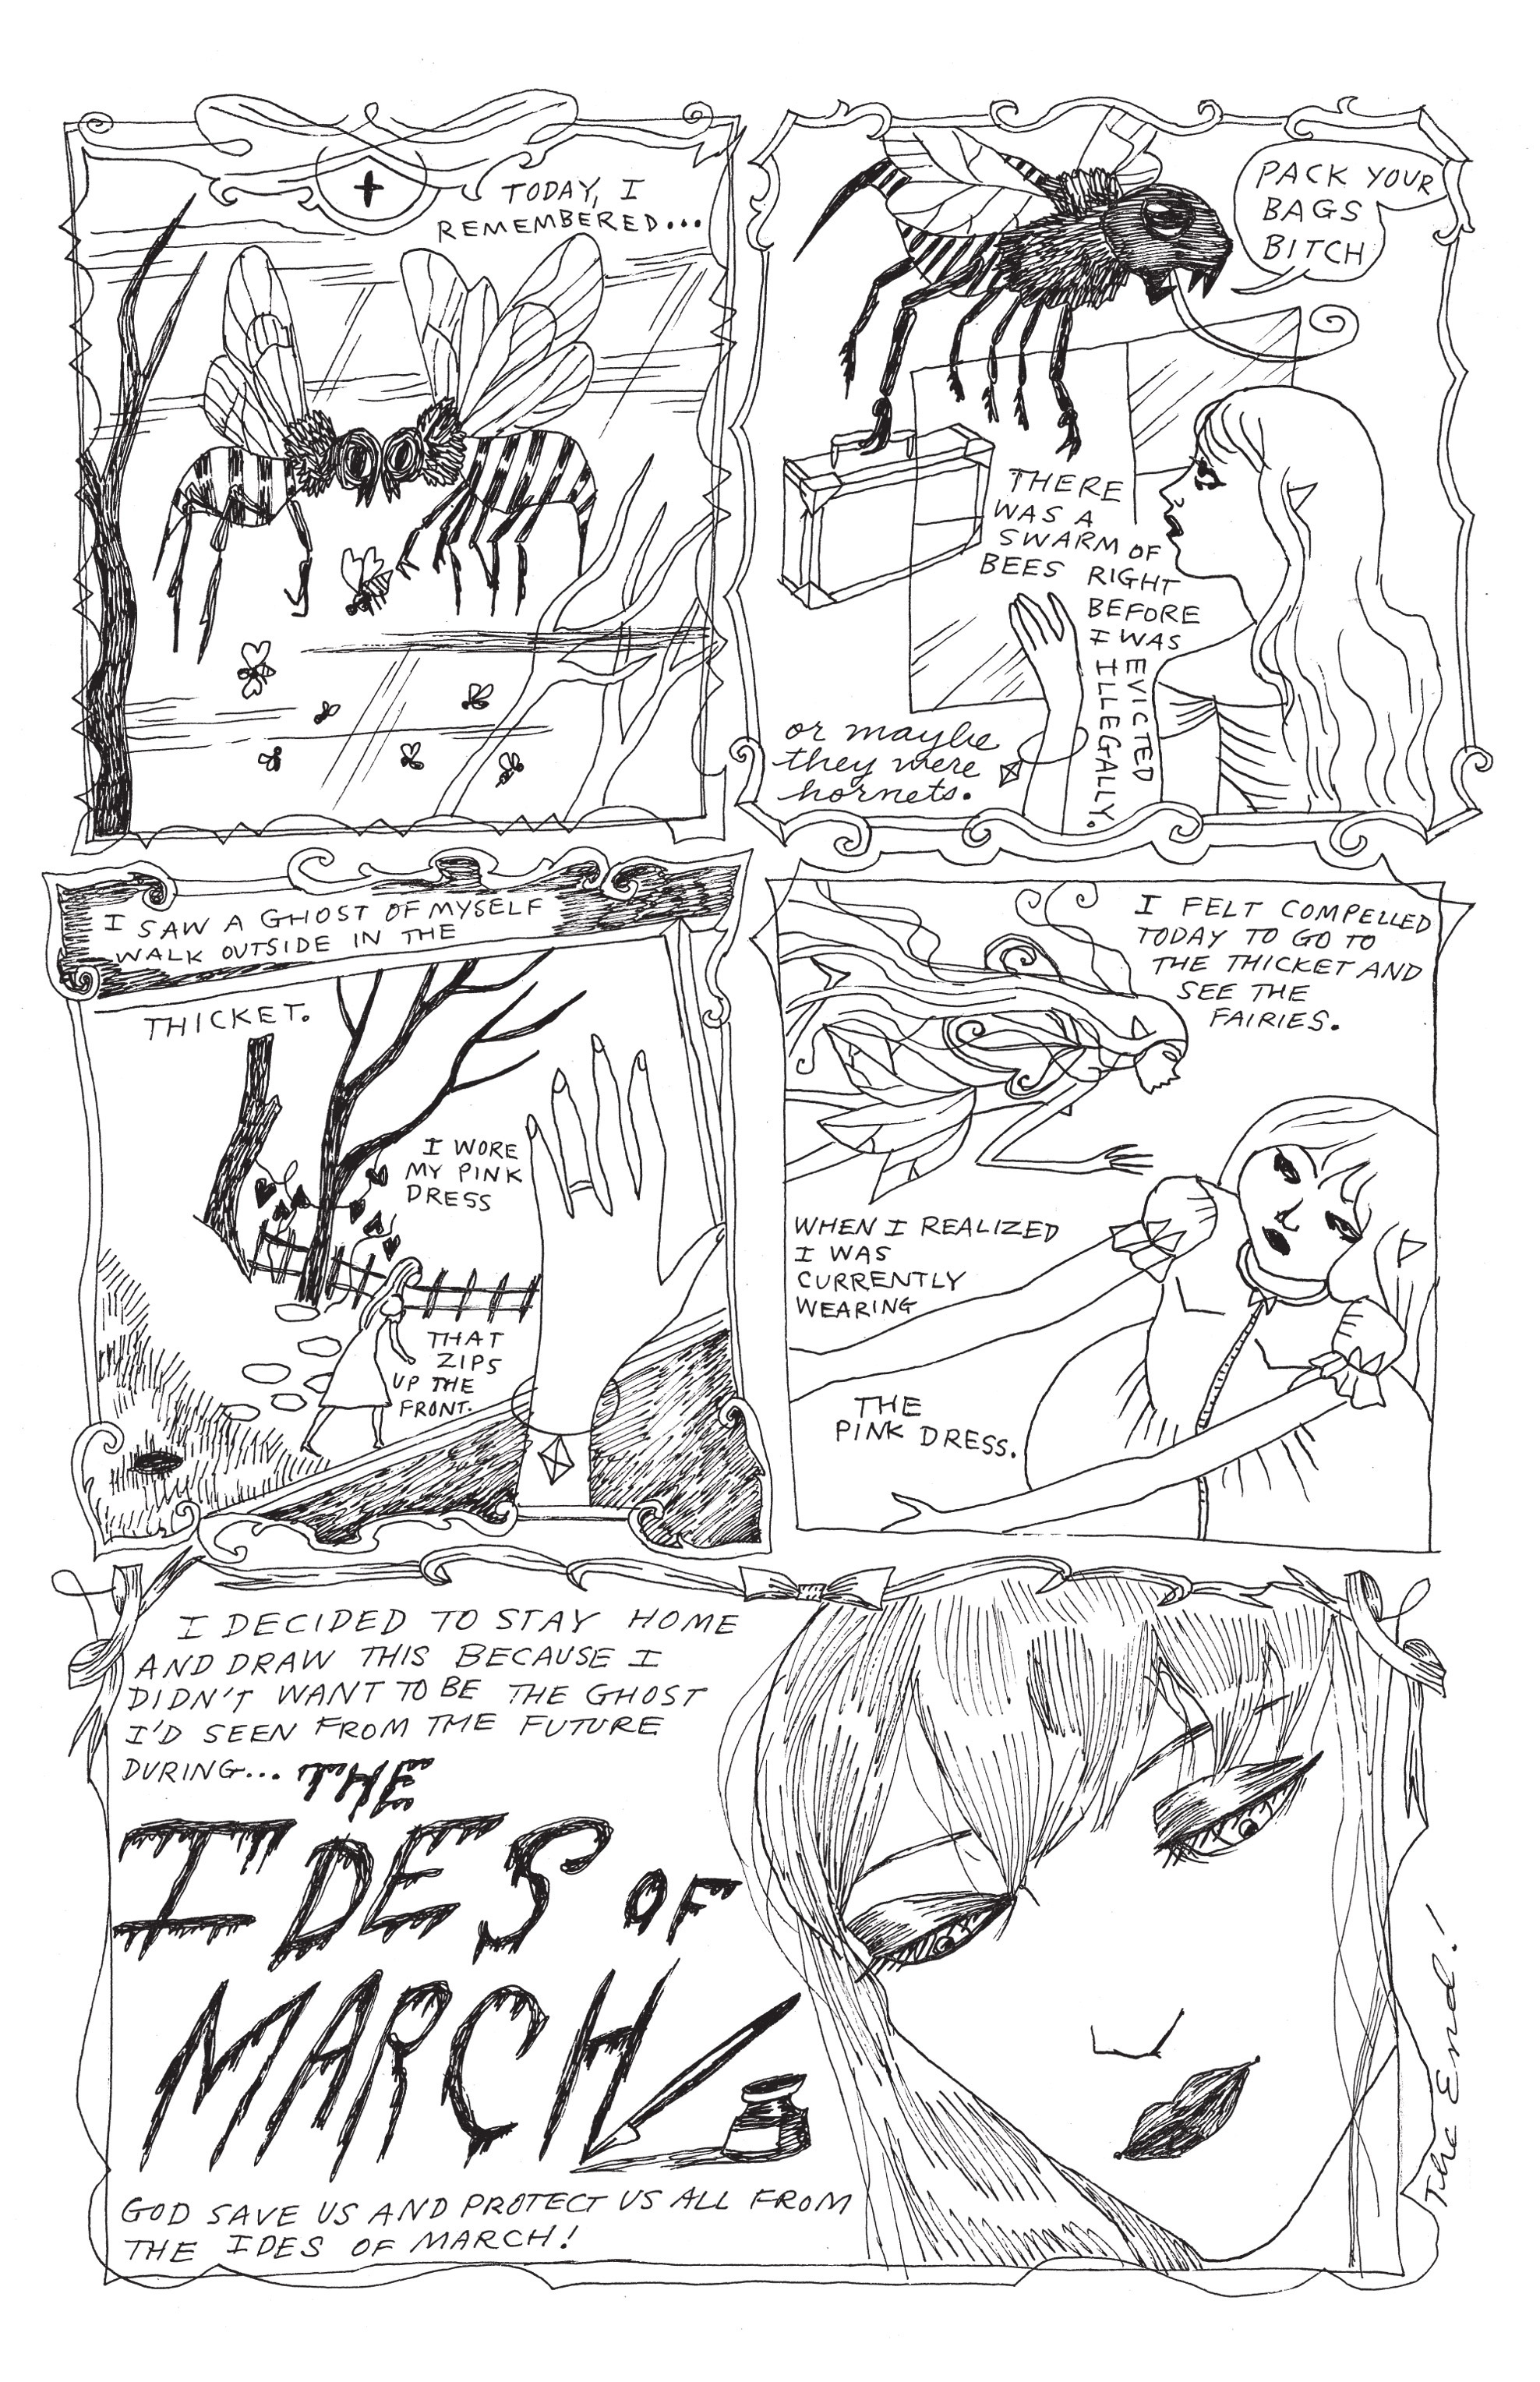 TODAY, I
REMEMBERED...
PACK YOUR
BAGS
BITCH
THERE
WAS A
SWARM OF
BEES RIGHT
BEFORE
I WAS
EVICTED
ILLEGALLY.
or maybe
they were
hornets.
I SAW A GHOST OF MYSELF
WALK OUTSIDE IN THE
THICKET.
I WORE
MY PINK
DRESS
THAT
ZIPS
UP THE
FRONT.
I FELT COMPELLED
TODAY TO GO TO
THE THICKET AND
SEE THE
FAIRIES.
WHEN I REALIZED
I WAS
CURRENTLY
WEARING
THE
PINK DRESS.
I DECIDED TO STAY HOME
AND DRAW THIS BECAUSE I
DIDN'T WANT TO BE THE GHOST
I'D SEEN FROM THE FUTURE
DURING... THE
IDES OF
MARCH
GOD SAVE US AND PROTECT US ALL FROM
THE IDES OF MARCH!
The End!